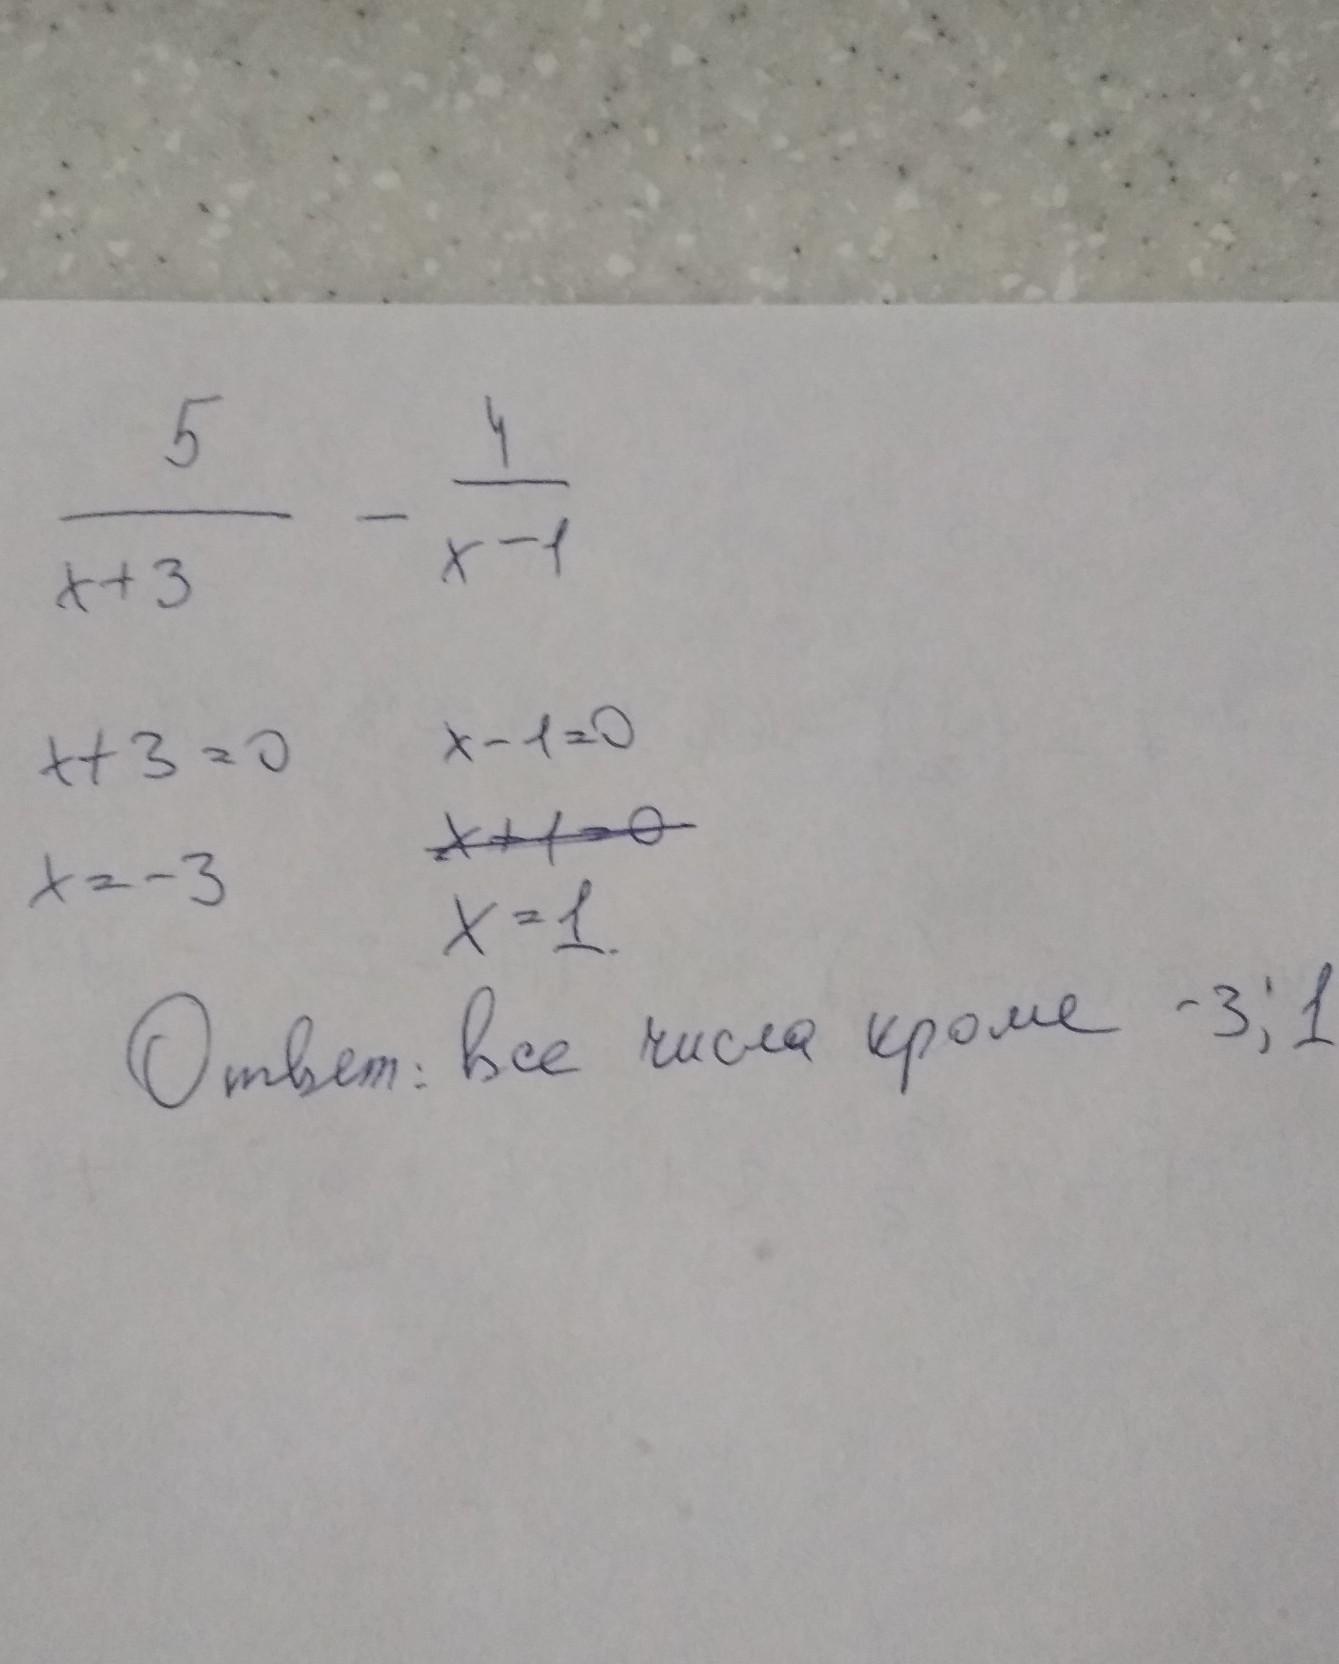 5/(x+3) - 4/(x-1)
x+3=0 x-1=0
x+1=0
x=-3 x=1.
Ответ: все числа кроме -3; 1